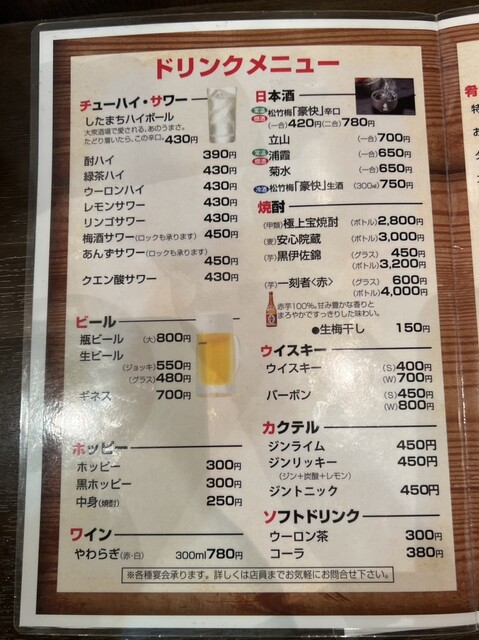 ドリンクメニュー
チューハイ・サワー
したまちハイボール
大衆酒場で愛される、あのうまさ。
たどり着いたら、この辛口。430円
酎ハイ 390円
緑茶ハイ 430円
ウーロンハイ 430円
レモンサワー 430円
リンゴサワー 430円
梅酒サワー(ロックも承ります) 450円
あんずサワー(ロックも承ります)
450円
クエン酸サワー 430円
ビール
瓶ビール (大)800円
生ビール
(ジョッキ)550円
(グラス)480円
ギネス 700円
ホッピー
ホッピー 300円
黒ホッピー 300円
中身(焼酎) 250円
ワイン
やわらぎ(赤・白) 300ml780円
日本酒
常温 燗酒 松竹梅「豪快」辛口
(一合)420円(二合)780円
立山 (一合)700円
常温 燗酒 浦霞 (一合)650円
菊水 (一合)650円
冷酒 松竹梅「豪快」生酒 (300㎖)750円
焼酎
(甲類)極上宝焼酎 (ボトル)2,800円
(麦)安心院蔵 (ボトル)3,000円
(芋)黒伊佐錦 (グラス)450円
(ボトル)3,200円
(芋)一刻者<赤> (グラス)600円
(ボトル)4,000円
赤芋100%。甘み豊かな香りと
まろやかですっきりした味わい。
●生梅干し 150円
ウイスキー
ウイスキー (S)400円
(W)700円
バーボン (S)450円
(W)800円
カクテル
ジンライム 450円
ジンリッキー 450円
(ジン+炭酸+レモン)
ジントニック 450円
ソフトドリンク
ウーロン茶 300円
コーラ 380円
※各種宴会承ります。詳しくは店員までお気軽にお問合せ下さい。
肴